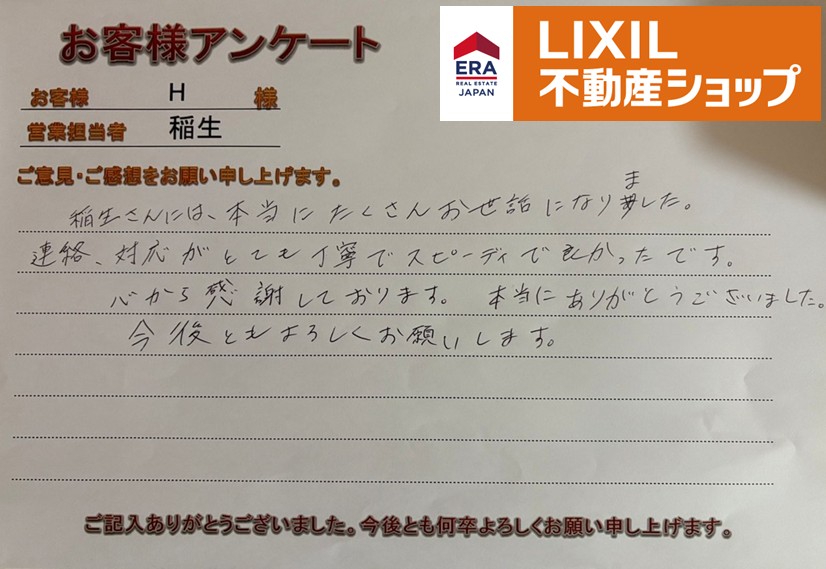 お客様アンケート
ERA
REAL ESTATE
JAPAN
LIXIL
不動産ショップ
お客様 H 様
営業担当者 稲生
ご意見・ご感想をお願い申し上げます。
稲生さんには、本当にたくさんお世話になりました。
連絡、対応がとても丁寧でスピーディで良かったです。
心から感謝しております。本当にありがとうございました。
今後ともよろしくお願いします。
ご記入ありがとうございました。今後とも何卒よろしくお願い申し上げます。